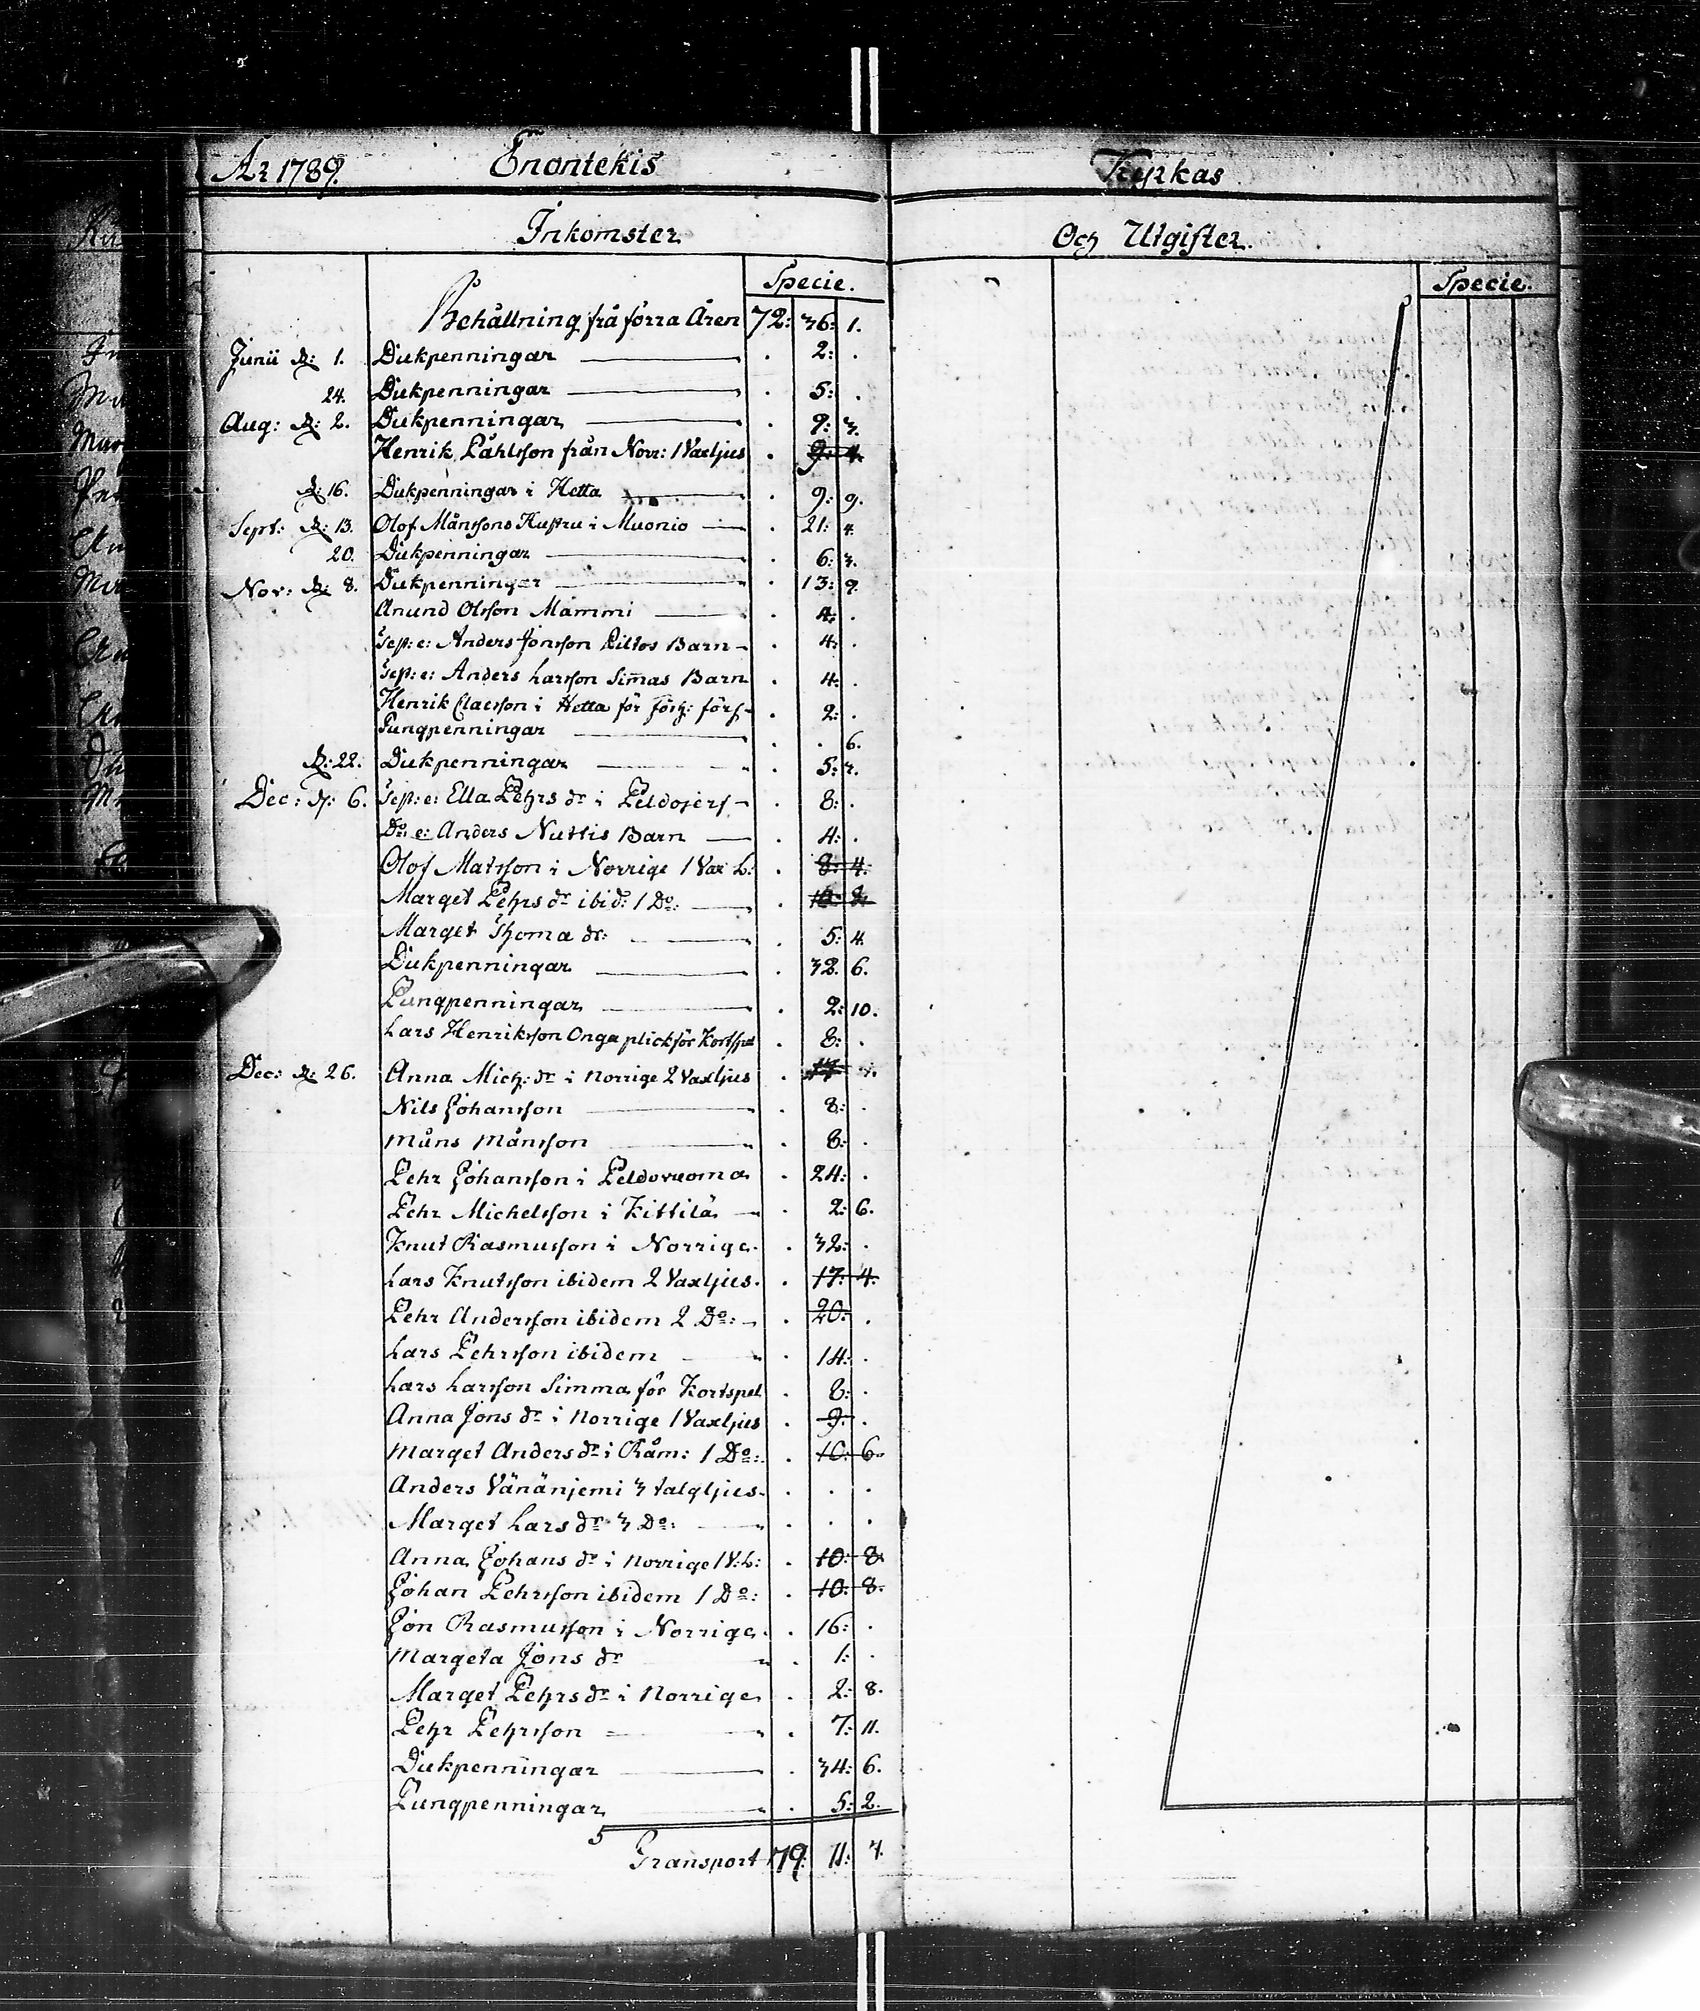 År 1789. Enontekis Kyrkas
Inkomster Och Utgifter.
Specie. Specie.
Behållning frå förra Åren 72: 36: 1.
Junii D: 1. Diskpenningar . 2: .
24. Diskpenningar . 5: .
Aug: D: 2. Diskpenningar . 9: 3.
Henrik Påhlsson från Norr: 1 Vaxljus . 9: 4.
D: 16. Diskpenningar i Hetta . 9: 9.
Sept: D: 13. Olof Månssons Hustru i Muonio . 21: 4.
20. Diskpenningar . 6: 3.
Nov: D: 8. Diskpenningar . 13: 9.
Anund Olsson Mammi . 4: .
Test: e: Anders Jonsson Piltos Barn . 4: .
Test: e: Anders Larsson Simmas Barn . 4: .
Henrik Claesson i Hetta för . 2: .
Pungpenningar . . 6.
D: 22. Diskpenningar . 5: 3.
Dec: D: 6. Test: e: Ella Pehrs dr i Peldojerf . 8: .
Do: e: Anders Nuttis Barn . 4: .
Olof Matsson i Norrige 1 Vax L: . 8: 4.
Marget Pehrs dr ibid: 1 Do: .
Marget Thoma dr: . 5: 4.
Diskpenningar . 32. 6.
Pungpenningar . 2: 10.
Lars Henriksson Onga plickt för Kortspel . 8: .
Dec: D: 26. Anna Mich: dr i Norrige 2 Vaxljus .
Nils Johansson . 8: .
Måns Månsson . 8: .
Pehr Johansson i Peldovuoma . 24: .
Pehr Michelsson i Kittilä . 2: 6.
Knut Rasmusson i Norrige . 32: .
Lars Knutsson ibidem 2 Vaxljus . 17: 4.
Pehr Andersson ibidem 2 Do: . 20: .
Lars Pehrsson ibidem . 14: .
Lars Larsson Simma för Kortspel . 8: .
Anna Jons dr i Norrige 1 Vaxljus . 9: .
Marget Anders dr i Råm: 1 Do: . 10: 6.
Anders Vänänjemi 3 talgljus . . .
Marget Lars dr 3 Do: . . .
Anna Johans dr i Norrige 1 V: L: . 10: 8.
Johan Pehrsson ibidem 1 Do: . 10: 8.
Jon Rasmusson i Norrige . 16: .
Margeta Jons dr . 1: .
Marget Pehrs dr i Norrige . 2: 8.
Pehr Pehrsson . 7: 11.
Diskpenningar . 34: 6.
Pungpenningar . 5: 2.
Transport 79: 11: 7.